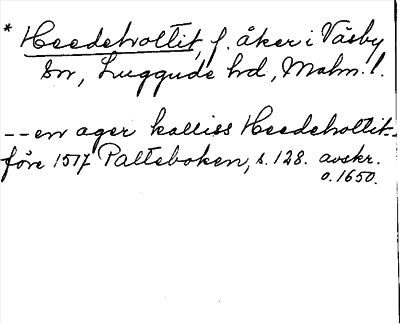 * Heedeholltit, f. åker i Väsby
sn, Luggude hd, Malm. l.
-- en ager kalliss Heedeholltit --
före 1517 Palteboken, s. 128. avskr.
o. 1650.